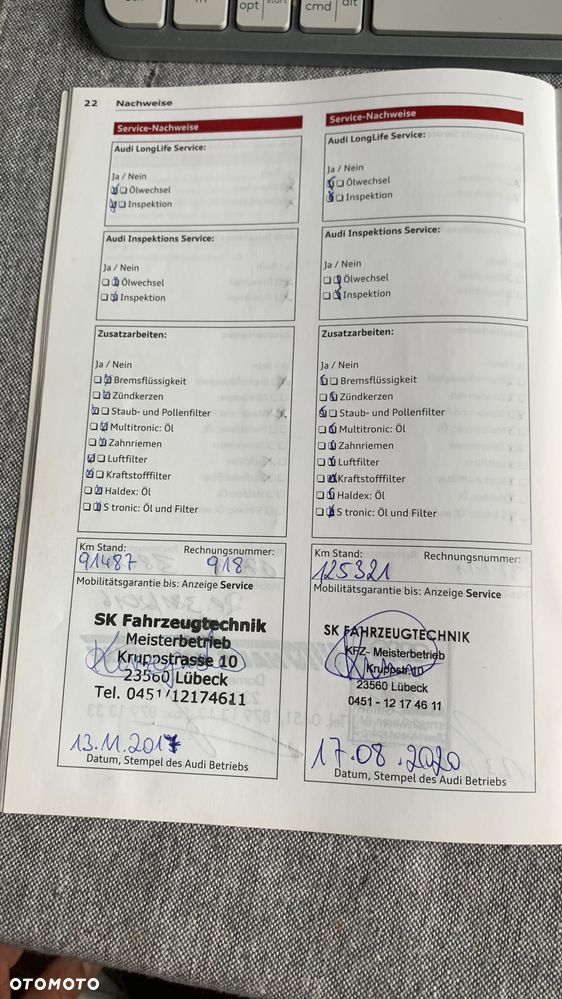 opt
start
cmd
alt
22 Nachweise
Service-Nachweise
Audi LongLife Service:
Ja / Nein
Ölwechsel
Inspektion
Audi Inspektions Service:
Ja / Nein
Ölwechsel
Inspektion
Zusatzarbeiten:
Ja / Nein
Bremsflüssigkeit
Zündkerzen
Staub- und Pollenfilter
Multitronic: Öl
Zahnriemen
Luftfilter
Kraftstofffilter
Haldex: Öl
S tronic: Öl und Filter
Km Stand: Rechnungsnummer:
91487 918
Mobilitätsgarantie bis: Anzeige Service
SK Fahrzeugtechnik
Meisterbetrieb
Kruppstrasse 10
23560 Lübeck
Tel. 0451/12174611
13.11.2017
Datum, Stempel des Audi Betriebs
Service-Nachweise
Audi LongLife Service:
Ja / Nein
Ölwechsel
Inspektion
Audi Inspektions Service:
Ja / Nein
Ölwechsel
Inspektion
Zusatzarbeiten:
Ja / Nein
Bremsflüssigkeit
Zündkerzen
Staub- und Pollenfilter
Multitronic: Öl
Zahnriemen
Luftfilter
Kraftstofffilter
Haldex: Öl
S tronic: Öl und Filter
Km Stand: Rechnungsnummer:
125321
Mobilitätsgarantie bis: Anzeige Service
SK FAHRZEUGTECHNIK
KFZ- Meisterbetrieb
Kruppstr.10
23560 Lübeck
0451 - 12 17 46 11
17.08.2020
Datum, Stempel des Audi Betriebs
OTOMOTO